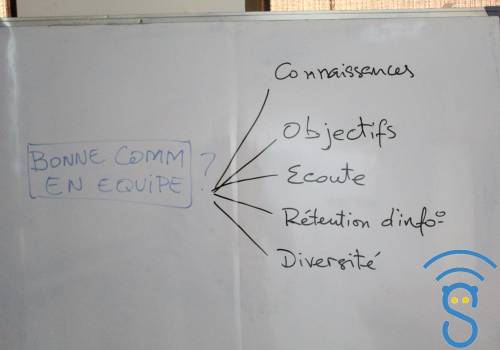 BONNE COMM
EN EQUIPE ?
Connaissances
Objectifs
Ecoute
Rétention d'info°
Diversité